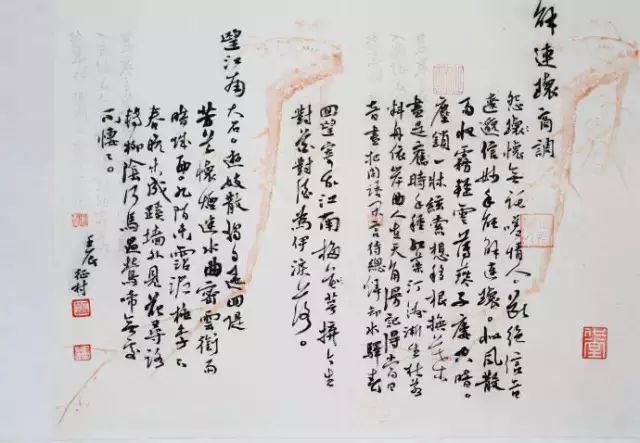 解連環 商調
怨懷無託嗟情人。斷絕信音
遼邈信妙手能解連環。似風散
雨收霧輕雲薄燕子樓空暗。
塵鎖一牀絃索想移根換葉
盡是舊時手種紅藥汀洲漸生杜若
料舟依岸曲人在天角漫記得當日
音書把閒語閒言待總燒卻水驛春
回望寄我江南梅萼拚今生
對花對酒為伊淚落。
望江南 大石。遊妓散獨自遶回堤
芳草懷煙迷水曲密雲銜雨
暗城西九陌未霑泥桃李下
春晚未成蹊墻外見花尋路
轉柳陰行馬過鶯啼無處
不悽悽。
壬辰 征村